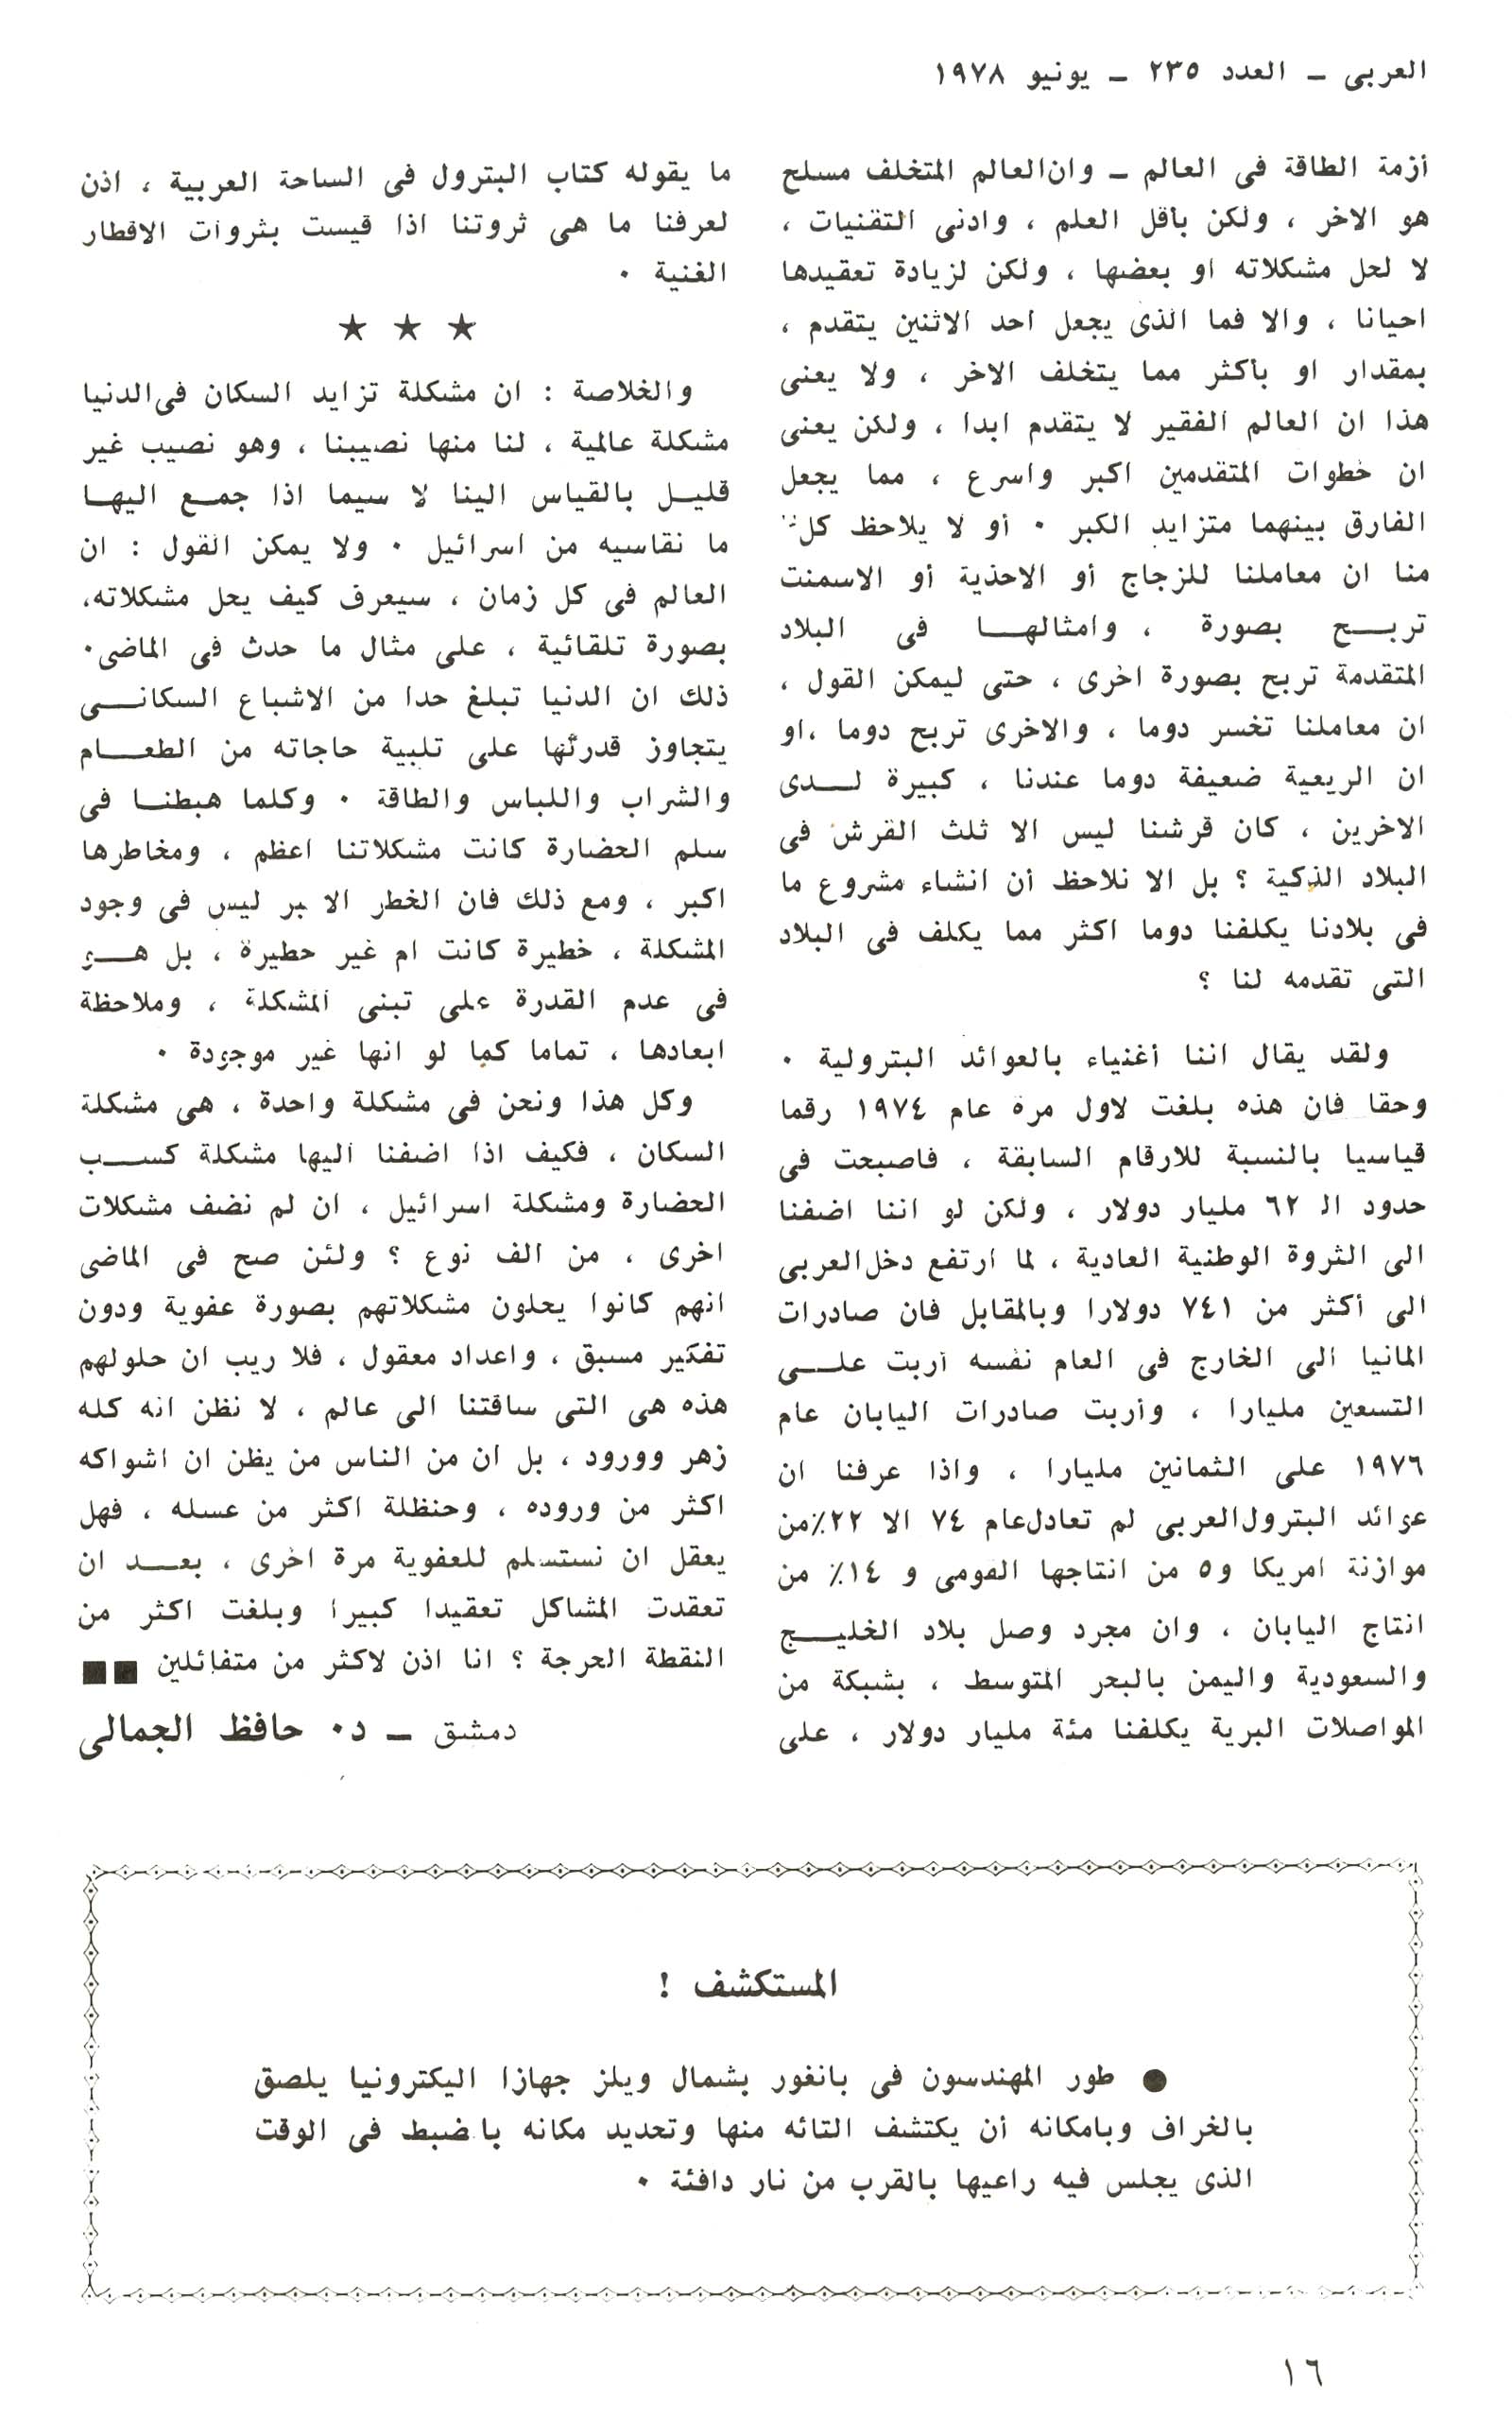 العربى ــ العدد ٢٣٥ ــ يونيو ١٩٧٨
أزمة الطاقة فى العالم ــ وان العالم المتخلف مسلح
هو الاخر ، ولكن بأقل العلم ، وادنى التقنيات ،
لا لحل مشكلاته او بعضها ، ولكن لزيادة تعقيدها
احيانا ، والا فما الذى يجعل احد الاثنين يتقدم ،
بمقدار او بأكثر مما يتخلف الاخر ، ولا يعنى
هذا ان العالم الفقير لا يتقدم ابدا ، ولكن يعنى
ان خطوات المتقدمين اكبر واسرع ، مما يجعل
الفارق بينهما متزايد الكبر ٠ أو لا يلاحظ كل
منا ان معاملنا للزجاج أو الاحذية أو الاسمنت
تربــح بصورة ، وامثالهــا فى البلاد
المتقدمة تربح بصورة اخرى ، حتى ليمكن القول ،
ان معاملنا تخسر دوما ، والاخرى تربح دوما ،او
ان الريعية ضعيفة دوما عندنا ، كبيرة لــدى
الاخرين ، كان قرشنا ليس الا ثلث القرش فى
البلاد الذكية ؟ بل الا نلاحظ أن انشاء مشروع ما
فى بلادنا يكلفنا دوما اكثر مما يكلف فى البلاد
التى تقدمه لنا ؟
ولقد يقال اننا أغنياء بالعوائد البترولية ٠
وحقا فان هذه بلغت لاول مرة عام ١٩٧٤ رقما
قياسيا بالنسبة للارقام السابقة ، فاصبحت فى
حدود الـ ٦٢ مليار دولار ، ولكن لو اننا اضفنا
الى الثروة الوطنية العادية ، لما ارتفع دخل العربى
الى أكثر من ٧٤١ دولارا وبالمقابل فان صادرات
المانيا الى الخارج فى العام نفسه أربت علــى
التسعين مليارا ، وأربت صادرات اليابان عام
١٩٧٦ على الثمانين مليارا ، واذا عرفنا ان
عوائد البترول العربى لم تعادل عام ٧٤ الا ٢٢٪ من
موازنة امريكا و٥ من انتاجها القومى و ١٤٪ من
انتاج اليابان ، وان مجرد وصل بلاد الخليــج
والسعودية واليمن بالبحر المتوسط ، بشبكة من
المواصلات البرية يكلفنا مئة مليار دولار ، على
ما يقوله كتاب البترول فى الساحة العربية ، اذن
لعرفنا ما هى ثروتنا اذا قيست بثروات الاقطار
الغنية ٠
★ ★ ★
والخلاصة : ان مشكلة تزايد السكان فى الدنيا
مشكلة عالمية ، لنا منها نصيبنا ، وهو نصيب غير
قليــل بالقياس الينا لا سيما اذا جمــع اليهــا
ما نقاسيه من اسرائيل ٠ ولا يمكن القول : ان
العالم فى كل زمان ، سيعرف كيف يحل مشكلاته،
بصورة تلقائية ، على مثال ما حدث فى الماضى٠
ذلك ان الدنيا تبلغ حدا من الاشباع السكانــى
يتجاوز قدرتها على تلبية حاجاته من الطعــام
والشراب واللباس والطاقة ٠ وكلما هبطنــا فى
سلم الحضارة كانت مشكلاتنا اعظم ، ومخاطرها
اكبر ، ومع ذلك فان الخطر الا بر ليس فى وجود
المشكلة ، خطيرة كانت ام غير خطيرة ، بل هــو
فى عدم القدرة على تبنى المشكلة ، وملاحظة
ابعادها ، تماما كما لو انها غير موجودة ٠
وكل هذا ونحن فى مشكلة واحدة ، هى مشكلة
السكان ، فكيف اذا اضفنا اليها مشكلة كســب
الحضارة ومشكلة اسرائيل ، ان لم نضف مشكلات
اخرى ، من الف نوع ؟ ولئن صح فى الماضى
انهم كانوا يحلون مشكلاتهم بصورة عفوية ودون
تفكير مسبق ، واعداد معقول ، فلا ريب ان حلولهم
هذه هى التى ساقتنا الى عالم ، لا نظن انه كله
زهر وورود ، بل ان من الناس من يظن ان اشواكه
اكثر من وروده ، وحنظلة اكثر من عسله ، فهل
يعقل ان نستسلم للعفوية مرة اخرى ، بعــد ان
تعقدت المشاكل تعقيدا كبيرا وبلغت اكثر من
النقطة الحرجة ؟ انا اذن لاكثر من متفائلين ■■
دمشق ــ د٠ حافظ الجمالى
المستكشف !
● طور المهندسون فى بانغور بشمال ويلز جهازا اليكترونيا يلصق
بالخراف وبامكانه أن يكتشف التائه منها وتحديد مكانه با ضبط فى الوقت
الذى يجلس فيه راعيها بالقرب من نار دافئة ٠
١٦